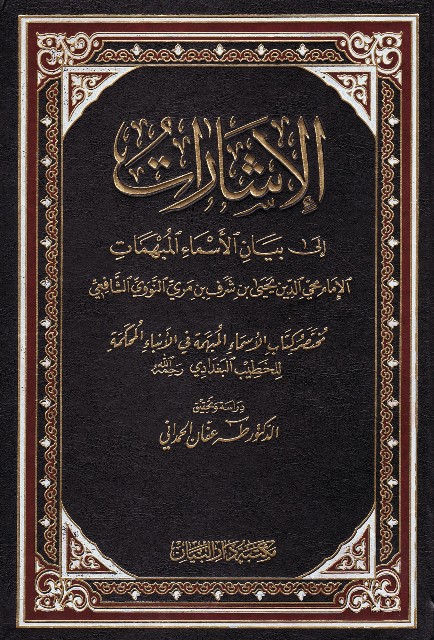 الإشارات
إلى بيان الأسماء المبهمات
الإمام محيي الدين يحيى بن شرف بن مري النووي الشافعي
مختصر كتاب الأسماء المبهمة في الأنباء المحكمة
للخطيب البغدادي رحمه الله
دراسة وتحقيق
الدكتور طه عفان الحمداني
مكتبة دار البيان